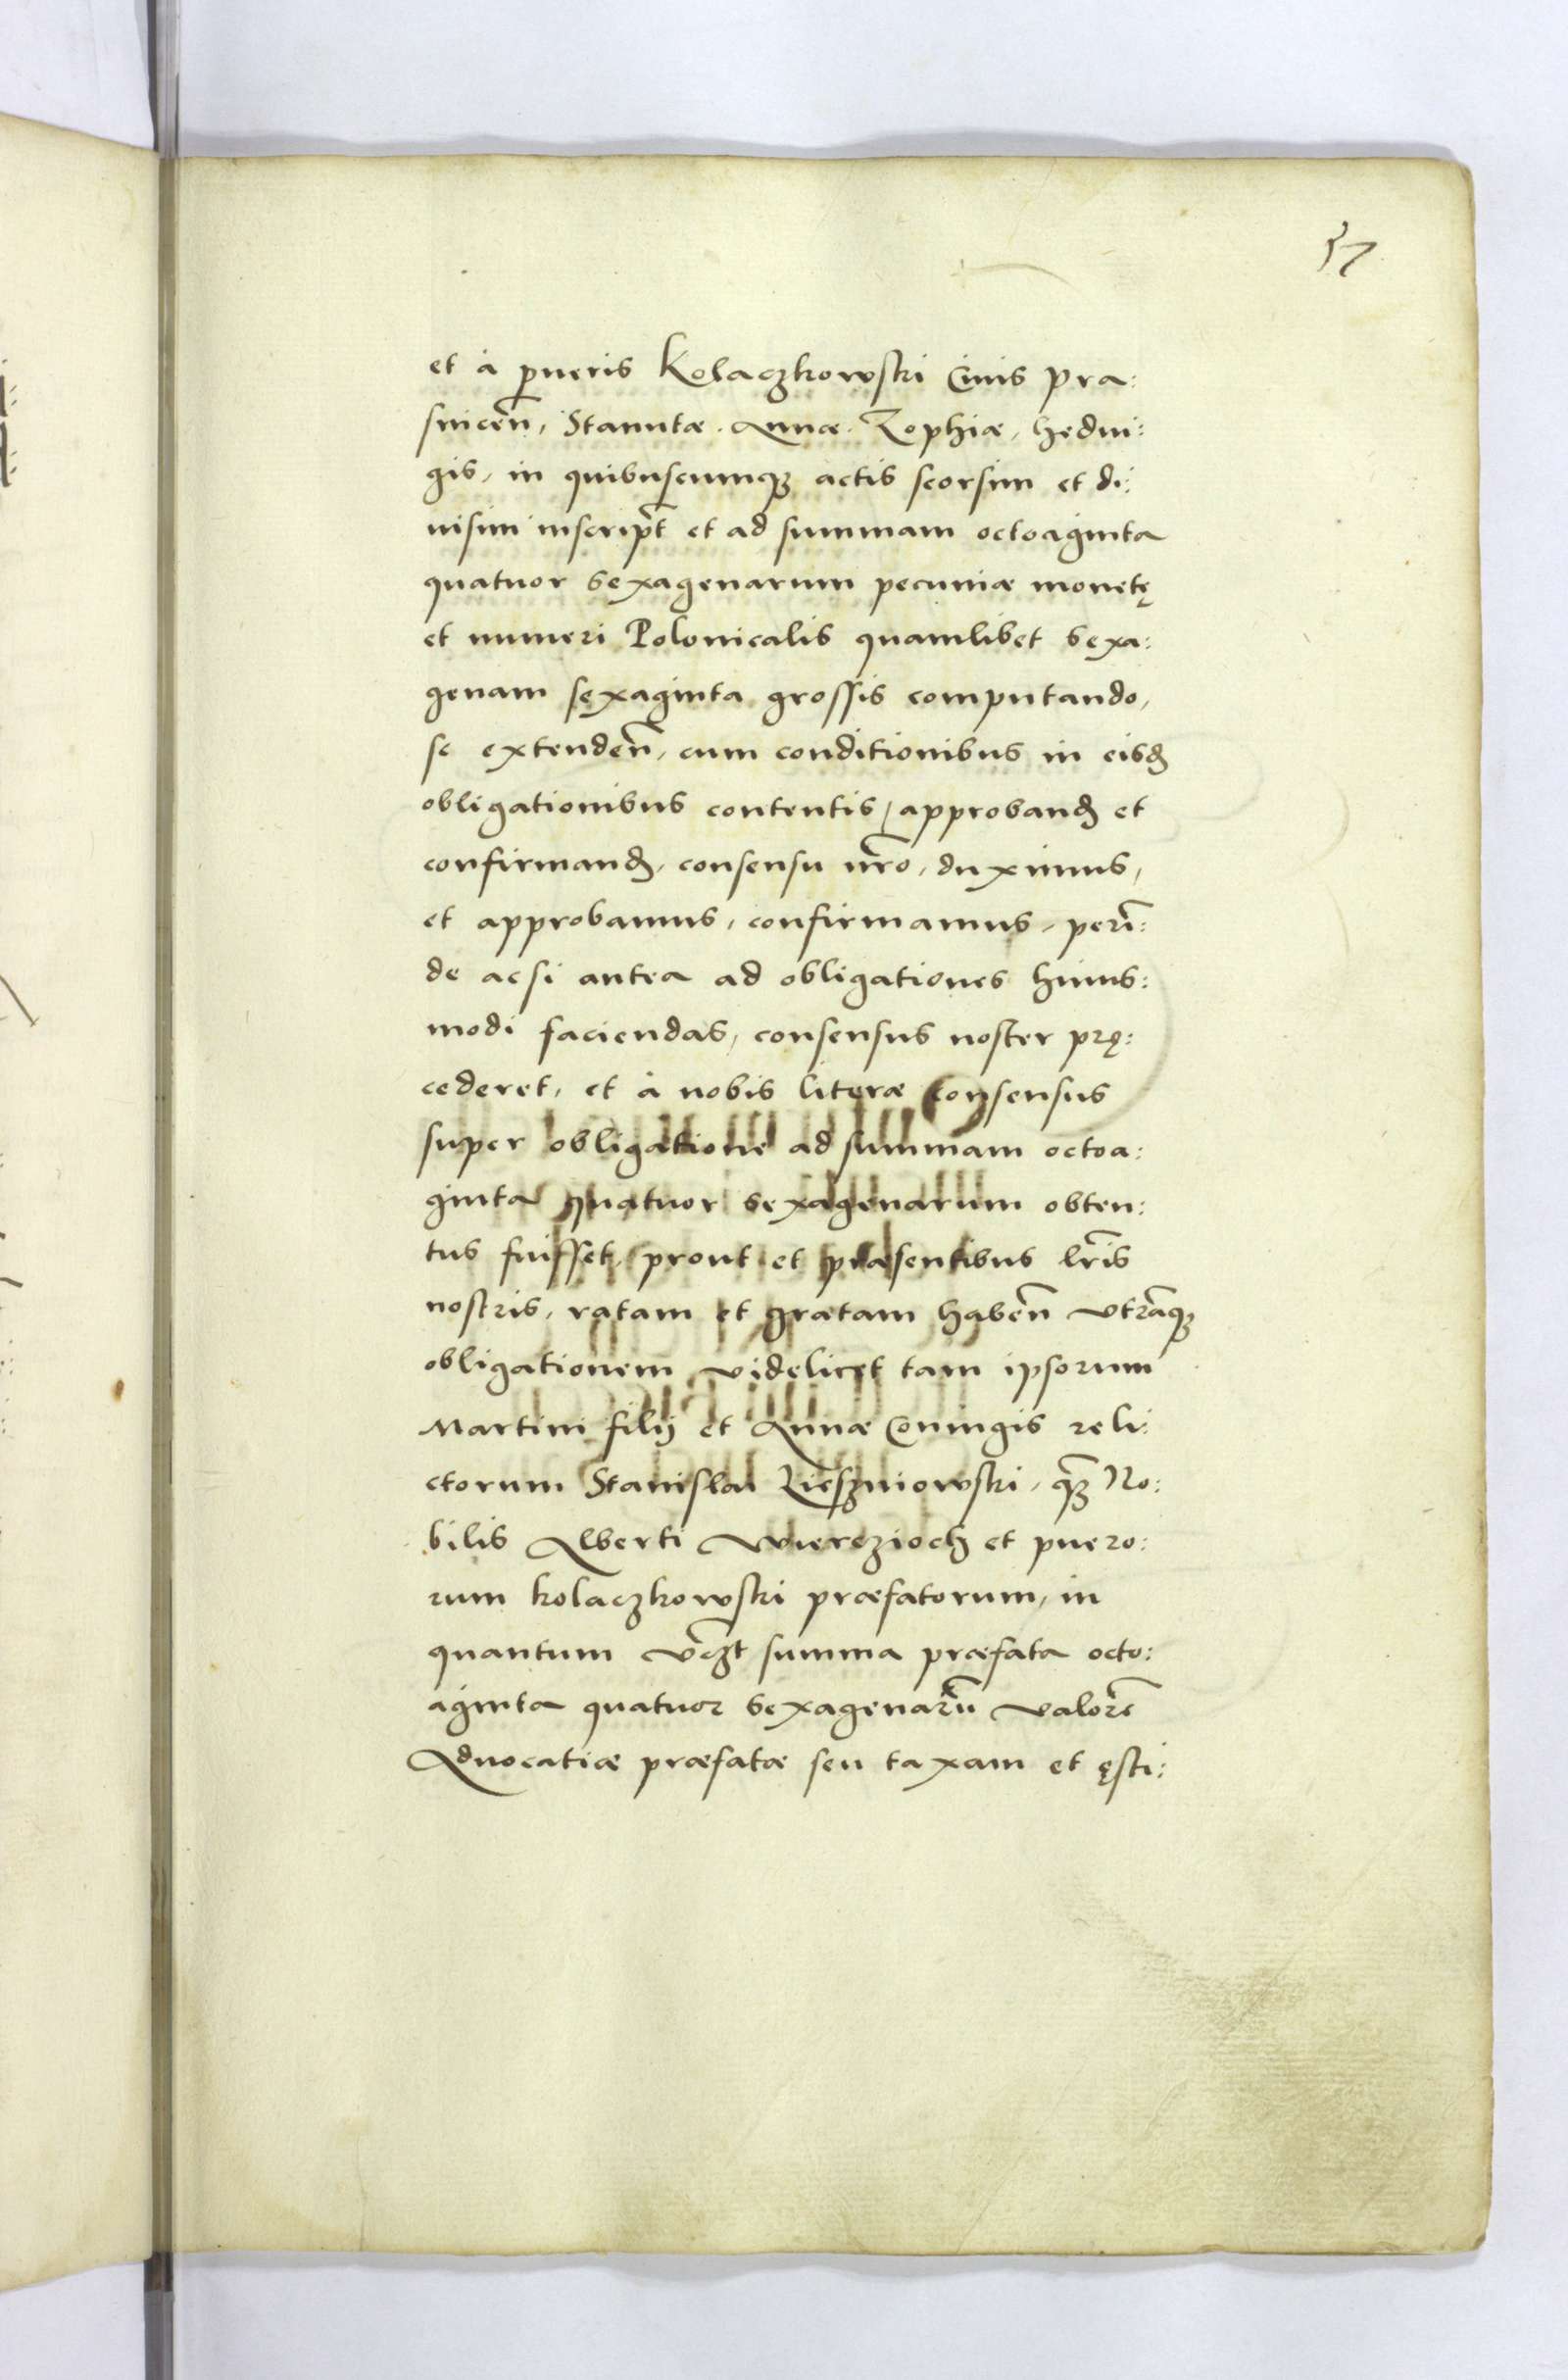 57
et à pueris Kolaczkowski Ciuis Pra:
snicen̄, Stanutæ. Annæ. Zophiæ, hedui:
gis, in quibuscumqꝫ actis seorsim et di:
uisim inscript̄ et ad summam octoaginta
quatuor sexagenarum pecuniæ monetę
et numeri Polonicalis quamlibet sexa:
genam sexaginta grossis computando,
se extenden̄, cum conditionibus in eisdꝫ
obligationibus contentis, approbandꝫ et
confirmandꝫ, consensu nr̄o, duximus,
et approbamus, confirmamus, perī:
de acsi antea ad obligationes huius:
modi faciendas, consensus noster prę:
cederet, et à nobis literæ consensus
super obligatione ad summam octoa:
ginta quatuor sexagenarum obten:
tus fuisset, prout et præsentibus lr̄is
nostris, ratam et gratam haben̄ vtrāqꝫ
obligationem videlicet tam ipsorum
Martini filij et Annæ Coniugis reli:
ctorum Stanislai Lieszniowski, qꝫ No:
bilis Alberti Wierczioch et puero:
rum kolaczkowski præfatorum, in
quantum vꝫt summa præfata octo:
aginta quatuor sexagenarū valorē
Aduocatiæ præfatæ seu taxam et ęsti: